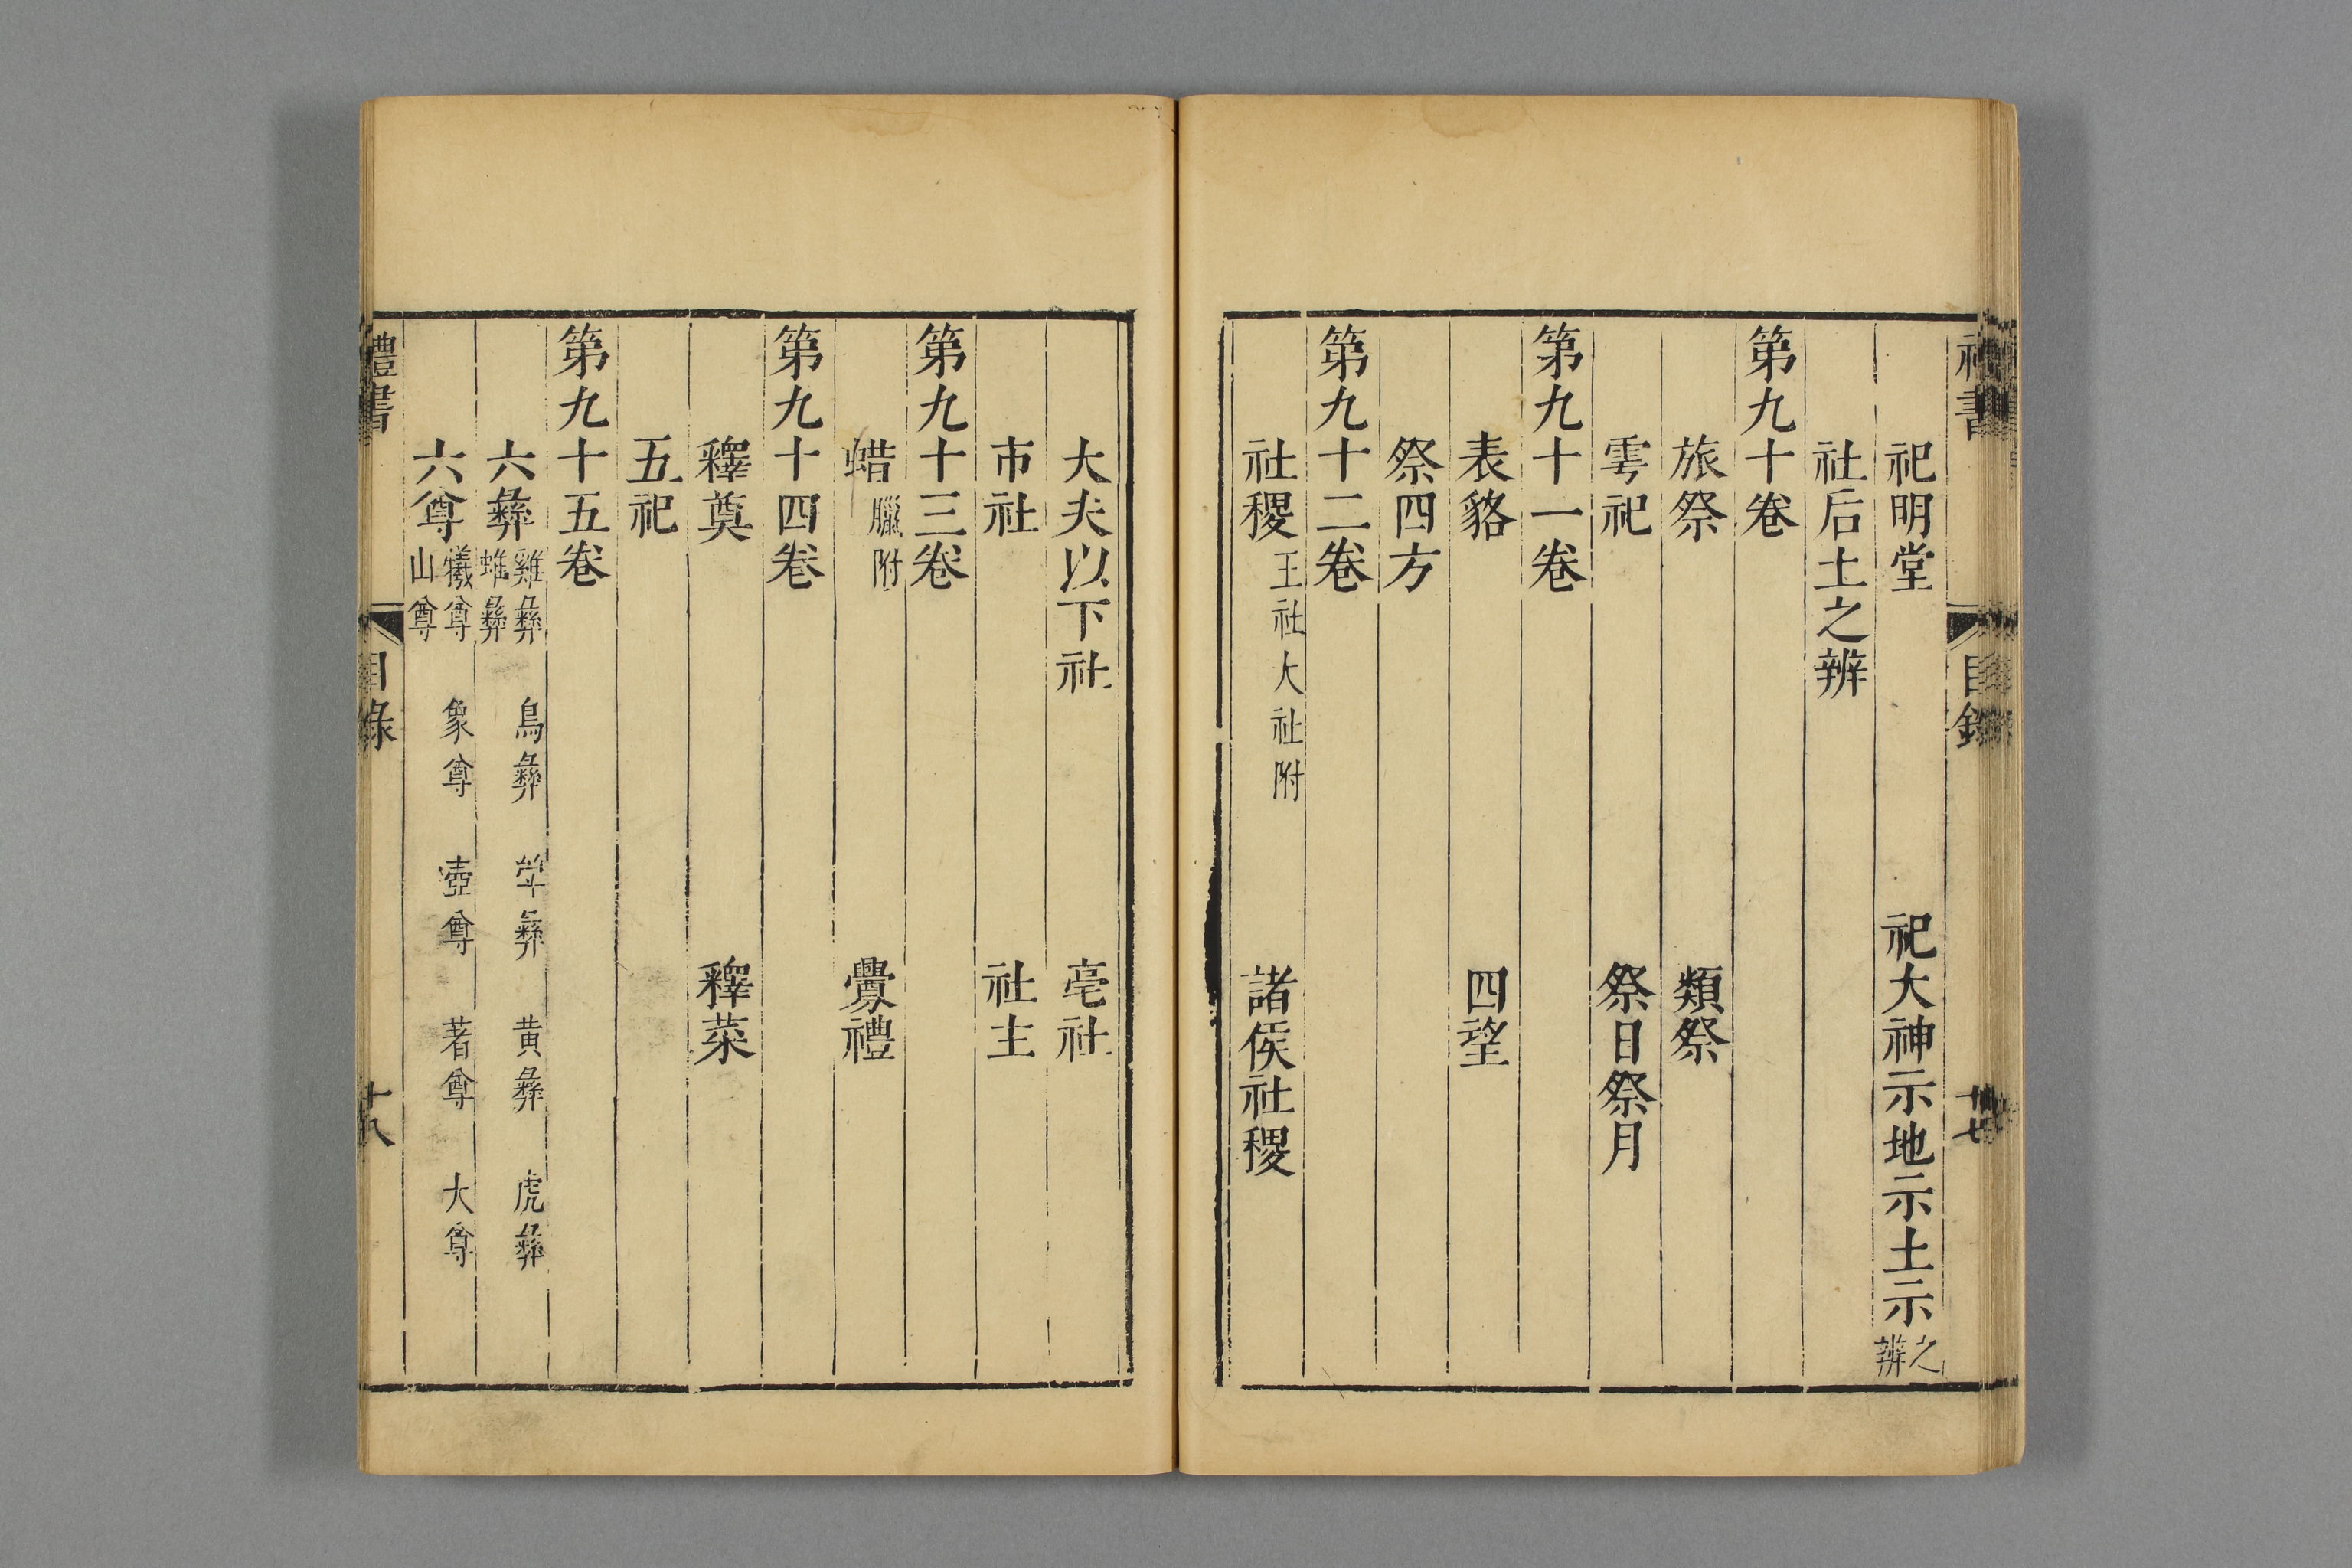 祀明堂 祀大神示地示土示之辨
社后土之辨
第九十卷
旅祭 類祭
雩祀 祭日祭月
第九十一卷
表貉 四望
祭四方
第九十二卷
社稷王社大社附 諸侯社稷
大夫以下社 亳社
市社 社主
第九十三卷
蜡臘附 釁禮
第九十四卷
釋奠 釋菜
五祀
第九十五卷
六彝雞彝 鳥彝 斝彝 黄彝 虎彝 蜼彝
六尊犧尊 象尊 壺尊 著尊 大尊 山尊
禮書 目錄